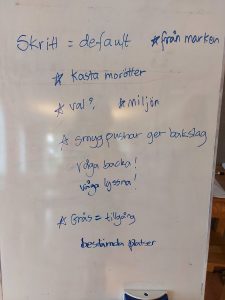 Skritt = default
☆ från marken
☆ Kasta morötter
☆ val?
☆ miljön
☆ smygpushar ger bakslag
våga backa!
våga lyssna!
☆ Gräs = tillgång
bestämda platser